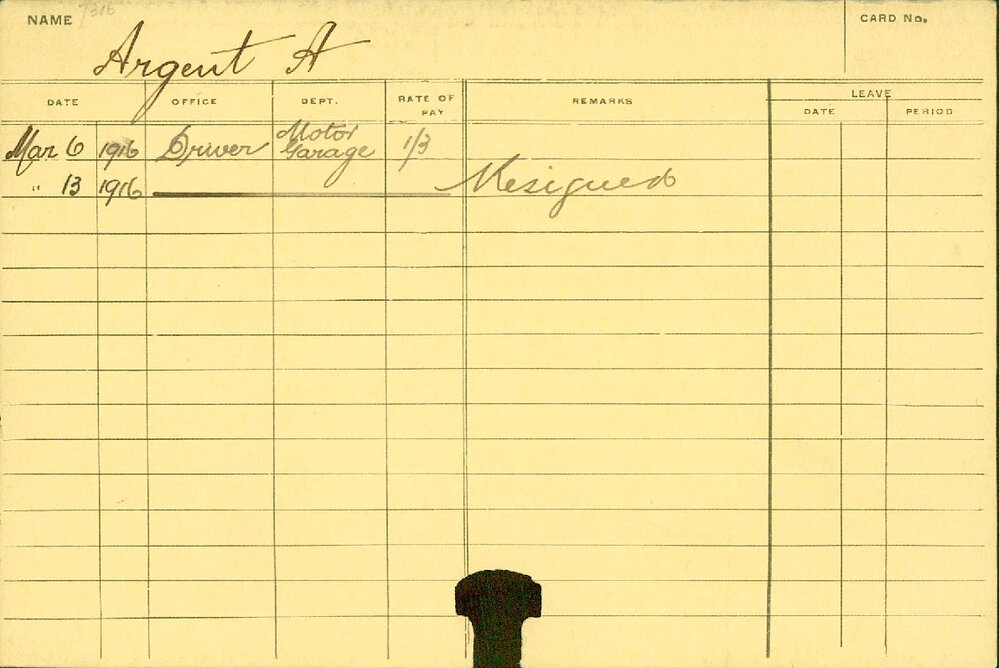 NAME 7316 CARD No.
Argent A
DATE OFFICE DEPT. RATE OF PAY REMARKS LEAVE
DATE PERIOD
Mar 6 1916 Driver Motor Garage 1/3
" 13 1916 Resigned